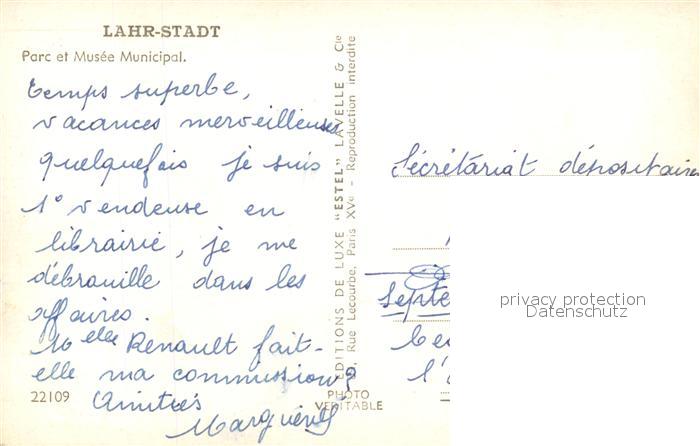 LAHR-STADT
Parc et Musée Municipal.
temps superbe,
vacances merveilleuses
quelquefois je suis
1° vendeuse en
librairie, je me
débrouille dans les
affaires.
Melle Renault fait-
elle ma commission?
Amitiés
22109
EDITIONS DE LUXE "ESTEL" LAVELLE & Cie
Rue Lecourbe, Paris XVe - Reproduction interdite
PHOTO
VERITABLE
Sécrétariat dépositaires
Septe
l'
privacy protection
Datenschutz